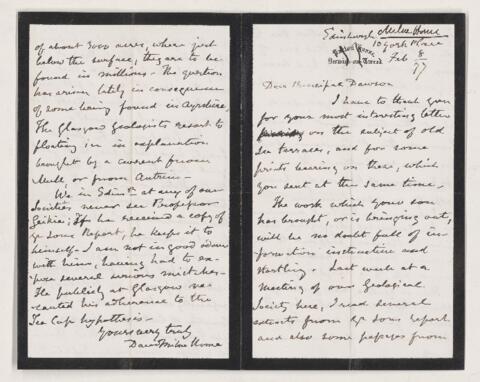 Milne Home
Edinburgh
10 York Place
Feb 8/77
Dear Principal Dawson
I have to thank you
for your most interesting letter
on the subject of old
Sea terraces, and for some
prints bearing on these, which
you sent at the same time.
The work which your son
has brought, or is bringing out,
will be no doubt full of in-
formation instructive and
startling. Last week at a
Meeting of our Geological
Society here, I read several
extracts from yr sons report
and also some passages from
of about 3000 acres, where just
below the surface, they are to be
found in millions. The question
has arisen lately in consequence
of some being found in Ayrshire.
The Glasgow Geologists resort to
floating ice in explanation
brought by a current from
Mull, or from Antrim.
We in Edinr at any of our
Societies, never see Professor
Geikie; If he received a copy of
yr Sons Report, he keeps it to
himself. I am not in good odour
with him, having had to ex-
pose several serious mistakes.
He publicly at Glasgow re-
canted his adherence to the
Ice Cap hypothesis.
Yours very truly
David Milne Home